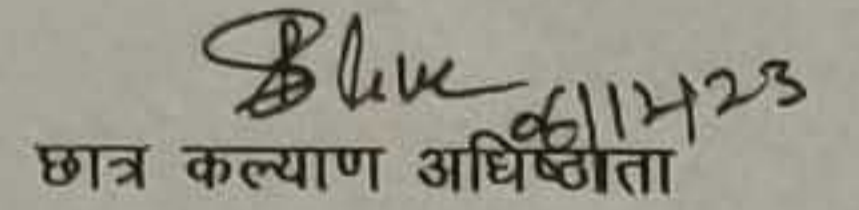 06/12/23
छात्र कल्याण अधिष्ठाता